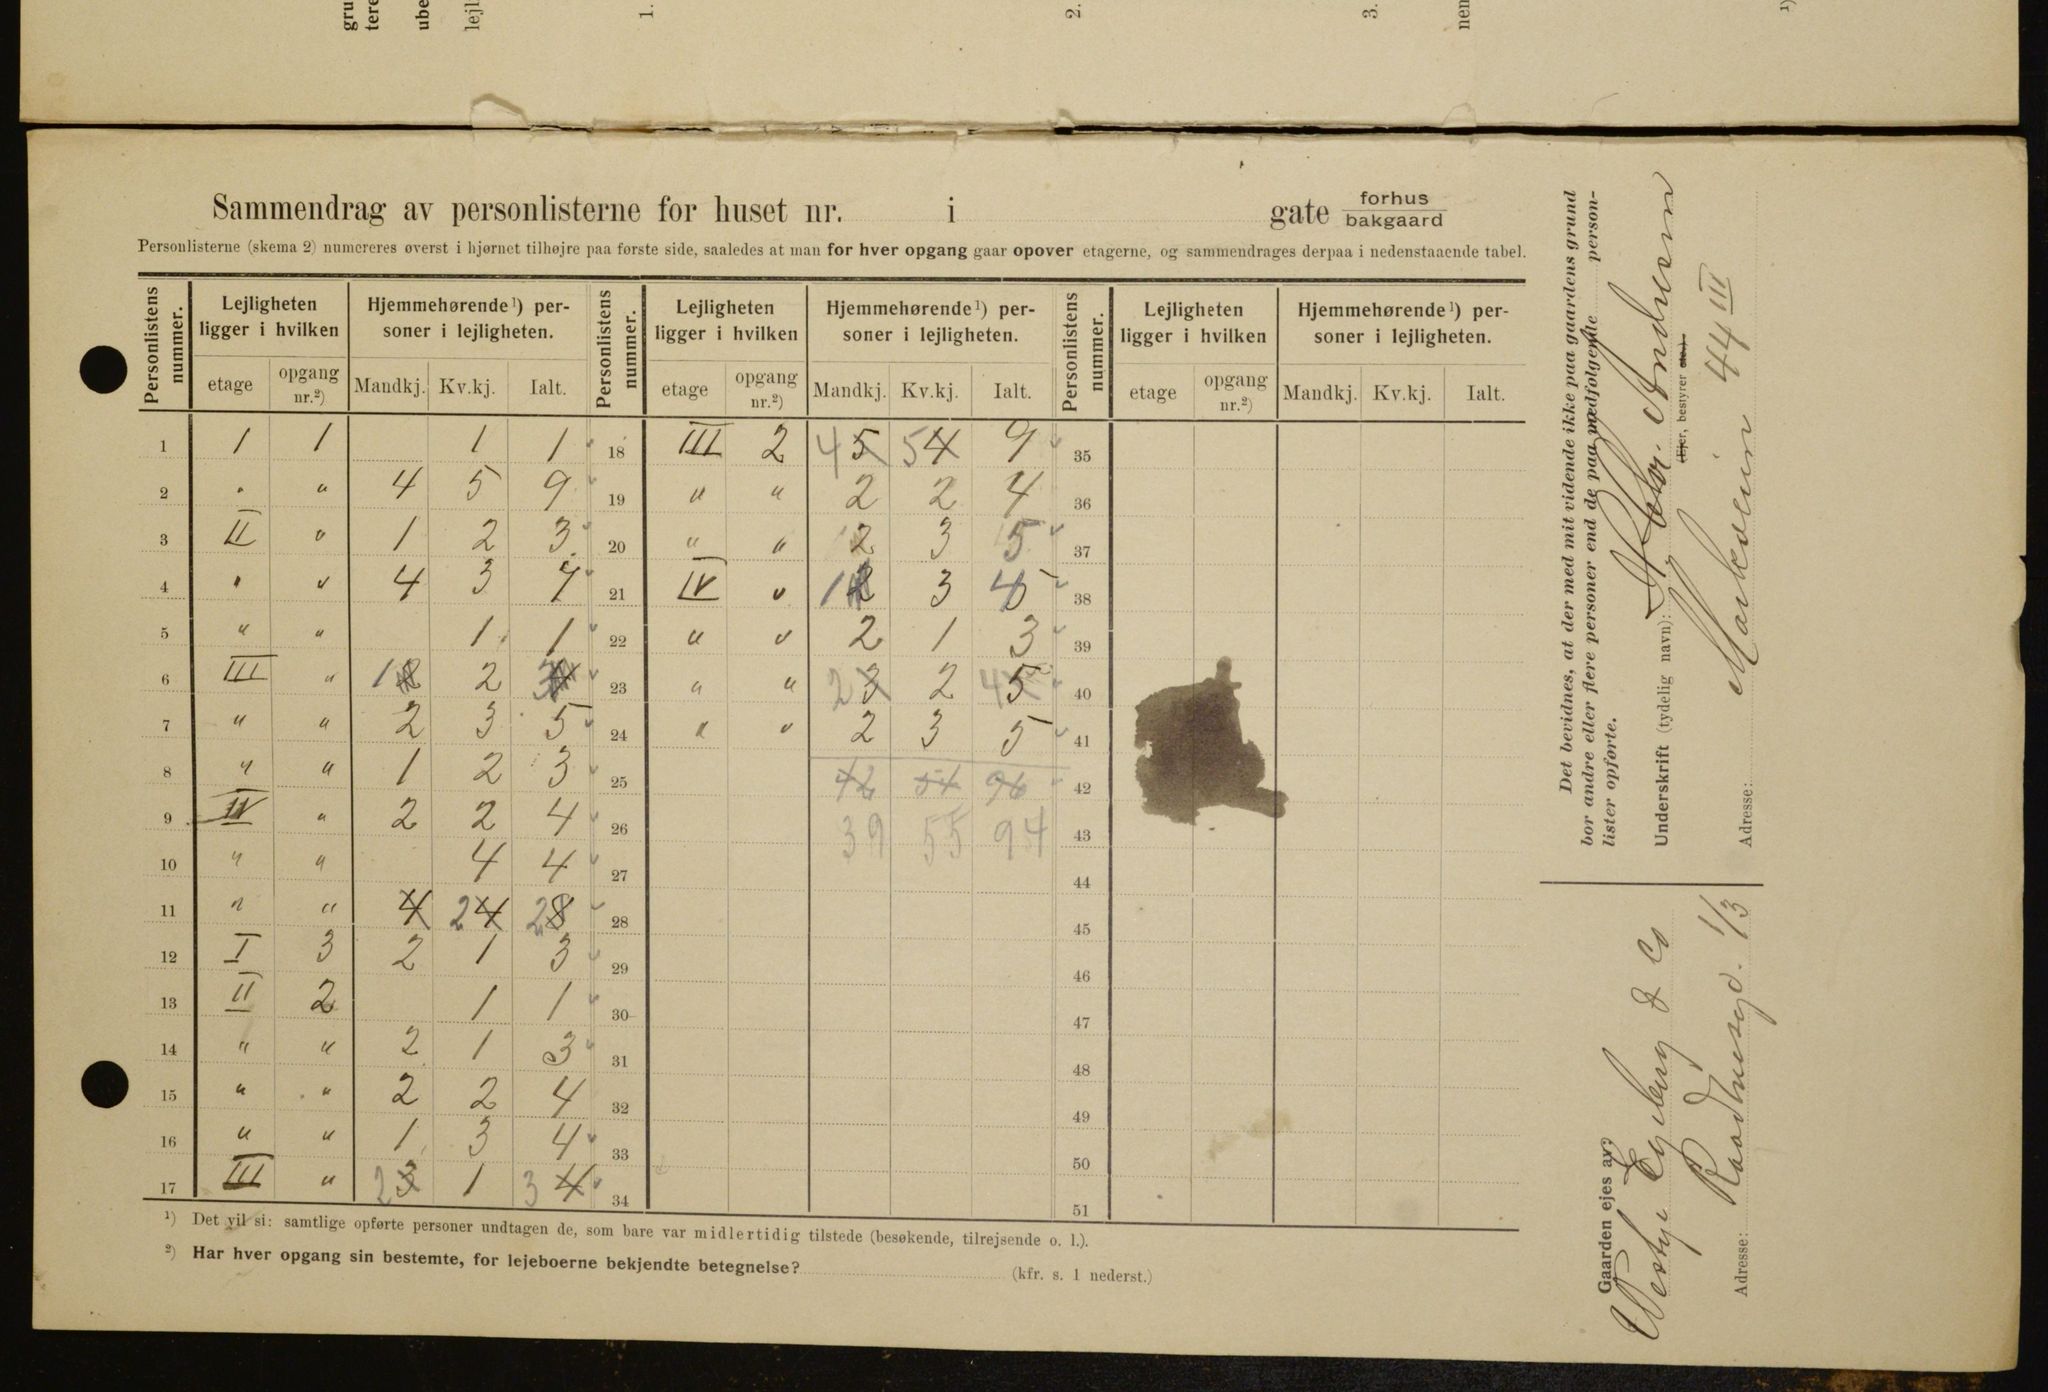 gru
tere
ube
lejl
1.
2.
3.
nen
¹)
Sammendrag av personlisterne for huset nr. i gate forhus
bakgaard
Personlisterne (skema 2) numereres øverst i hjørnet tilhøjre paa første side, saaledes at man for hver opgang gaar opover etagerne, og sammendrages derpaa i nedenstaaende tabel.
Personlistens nummer. Lejligheten ligger i hvilken Hjemmehørende¹) personer i lejligheten. Personlistens nummer. Lejligheten ligger i hvilken Hjemmehørende¹) personer i lejligheten. Personlistens nummer. Lejligheten ligger i hvilken Hjemmehørende¹) personer i lejligheten.
etage opgang nr.²) Mandkj. Kv.kj. Ialt. etage opgang nr.²) Mandkj. Kv.kj. Ialt. etage opgang nr.²) Mandkj. Kv.kj. Ialt.
1 1 1 1 1 18 III 2 4 5 5 4 9 35
2 " " 4 5 9 19 " " 2 2 4 36
3 II " 1 2 3 20 " " 2 3 5 37
4 " " 4 3 7 21 IV " 1 2 3 4 5 38
5 " " 1 1 22 " " 2 1 3 39
6 III " 1 2 2 3 4 23 " " 2 3 2 4 5 40
7 " " 2 3 5 24 " " 2 3 5 41
8 " " 1 2 3 25 42 54 96 42
9 IV " 2 2 4 26 39 55 94 43
10 " " 4 4 27 44
11 " " 4 2 4 2 8 28 45
12 I 3 2 1 3 29 46
13 II 2 1 1 30 47
14 " " 2 1 3 31 48
15 " " 2 2 4 32 49
16 " " 1 3 4 33 50
17 III " 2 3 1 3 4 34 51
¹) Det vil si: samtlige opførte personer undtagen de, som bare var midlertidig tilstede (besøkende, tilrejsende o. l.).
²) Har hver opgang sin bestemte, for lejeboerne bekjendte betegnelse? (kfr. s. 1 nederst.)
Det bevidnes, at der med mit vidende ikke paa gaardens grund
bor andre eller flere personer end de paa medfølgende personlister opførte.
Underskrift (tydelig navn): Andresen
(Ejer, bestyrer etc.)
Adresse: Markveien 44 III
Gaarden ejes av:
Westye Egeberg & Co
Adresse: Raadhusgd. 1/3